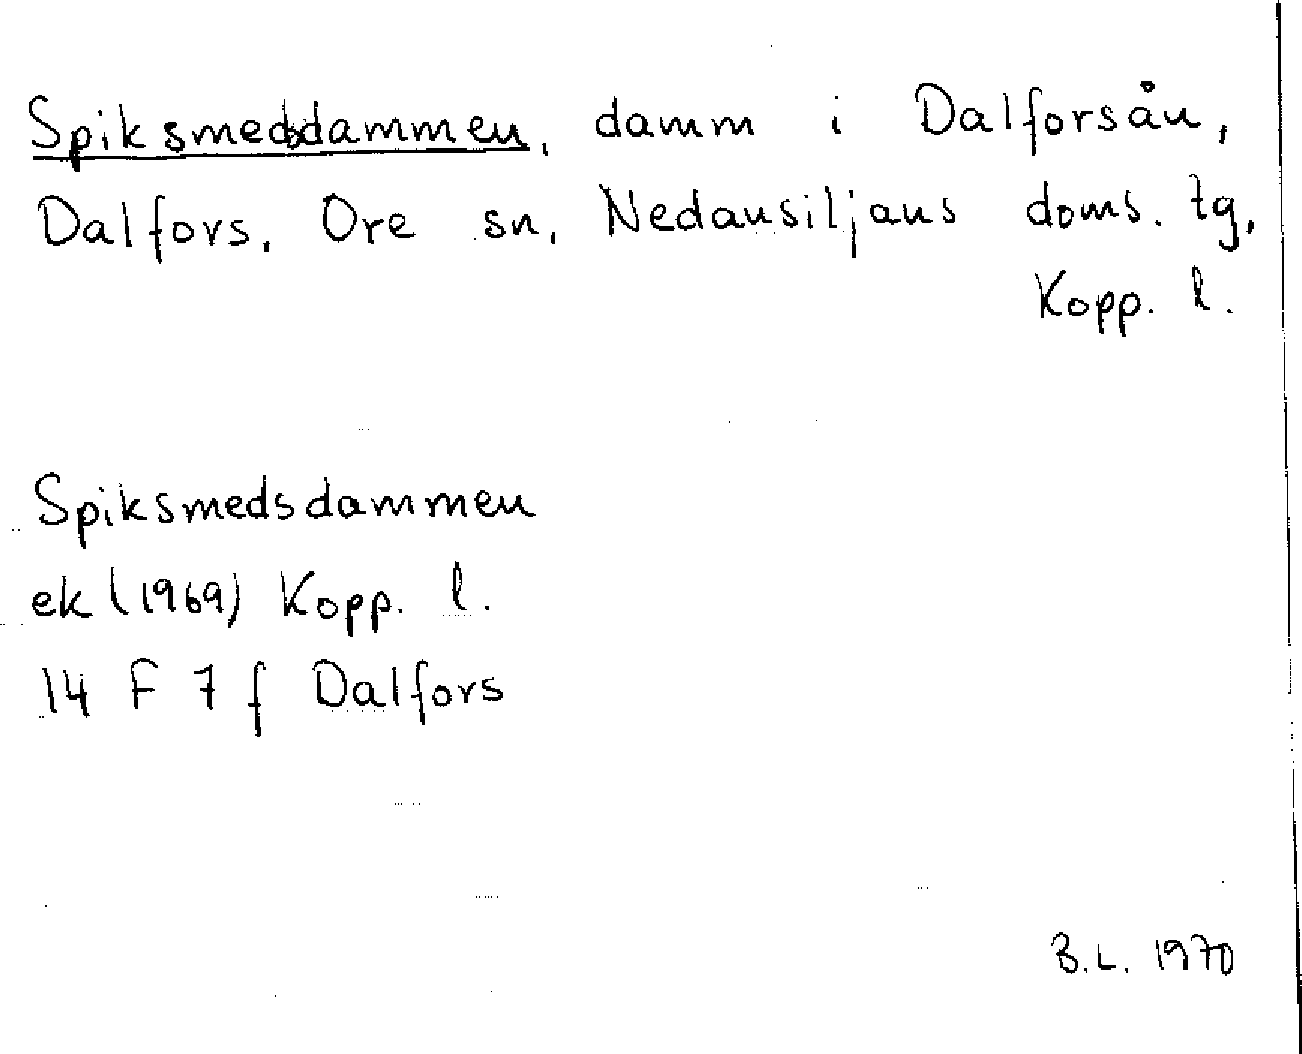 Spiksmedsdammen, damm i Dalforsån,
Dalfors, Ore sn, Nedansiljans doms. tg,
Kopp. l.
Spiksmedsdammen
ek (1969) Kopp. l.
14 F 7 f Dalfors
B.L. 1970